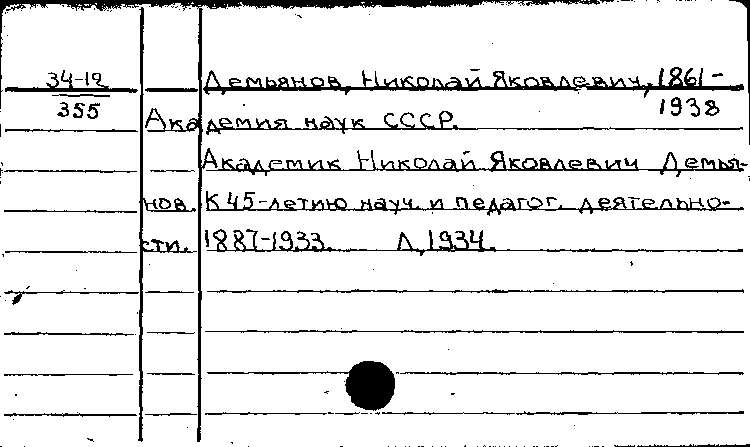 34-12 Демьянов, Николай Яковлевич, 1861-
355 1938
Академия наук СССР.
Академик Николай Яковлевич Демья-
нов. К 45-летию науч. и педагог. деятельно-
сти. 1887-1933. Л, 1934.